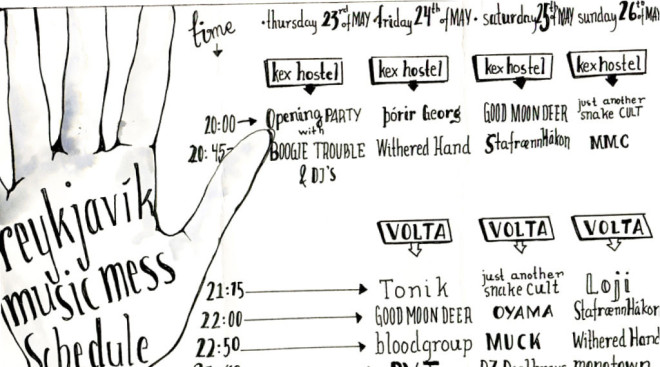 time
· thursday 23rd of MAY · friday 24th of MAY · saturday 25th of MAY sunday 26th of MAY
kex hostel kex hostel kex hostel kex hostel
20:00 Opening PARTY þórir Georg GOOD MOON DEER just another snake CULT
with
20:45 BOOGIE TROUBLE Withered Hand StafrænnHákon MMC
& DJ's
VOLTA VOLTA VOLTA
reykjavík
music mess
Schedule
21:15 Tonik just another snake cult Loji
22:00 GOOD MOON DEER OYAMA StafrænnHákon
22:50 bloodgroup MUCK Withered Hand